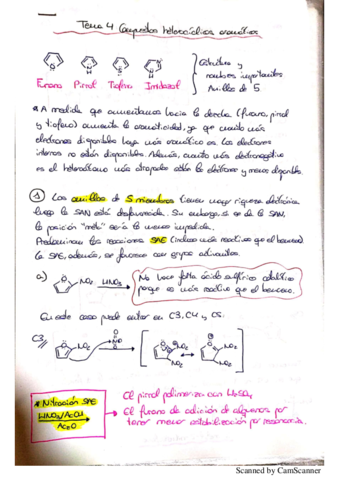 Tema 4 Compuestos heterocíclicos aromáticos
Furano Pirrol Tiofeno Imidazol
Estructura y
nombres importantes
Anillos de 5
* A medida que aumentamos hacia la derecha (furano, pirrol
y tiofeno) aumenta la aromaticidad, ya que cuanto más
electrones disponibles haya más aromático es. Los electrones
internos no están disponibles. Además, cuanto más electronegativo
es el heteroátomo más atrapados están los electrones y menos disponibles.
① Los anillos de 5 miembros tienen mayor riqueza electrónica
luego la SAN está desfavorecida. Sin embargo si se da la SAN,
la posición "meta" sería la menos impedida.
Predominan las reacciones SAE (incluso más reactivo que el benceno)
la SAE, además, se favorece con grupos activantes.
a) O NO₂ HNO₃
No hace falta ácido sulfúrico catalítico
porque es más reactivo que el benceno.
En este caso puede entrar en C3, C4 y C5.
C3
NO₂
* Nitración SAE
HNO₃/AcOH
Ac₂O
El pirrol polimeriza con H₂SO₄
El furano da adición de alquenos por
tener menor estabilización por resonancia.
Scanned by CamScanner